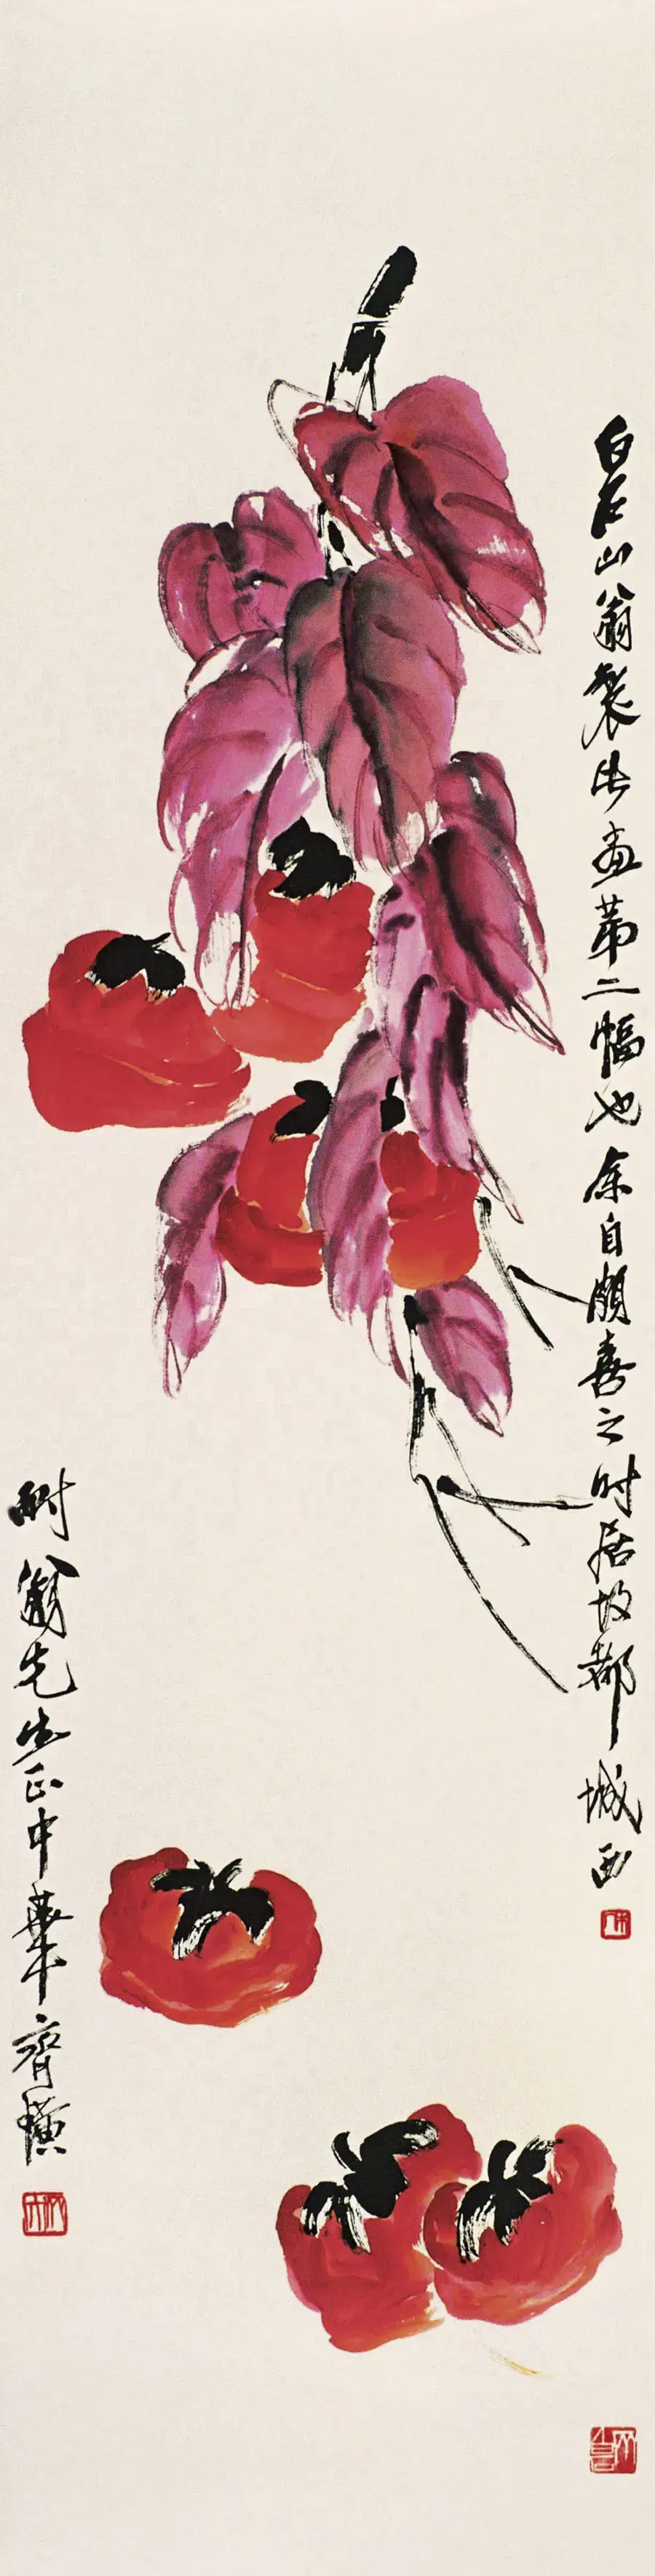 白石山翁製此画第二幅也余自頗喜之时居故都城西
耐翁先生正中華齊璜